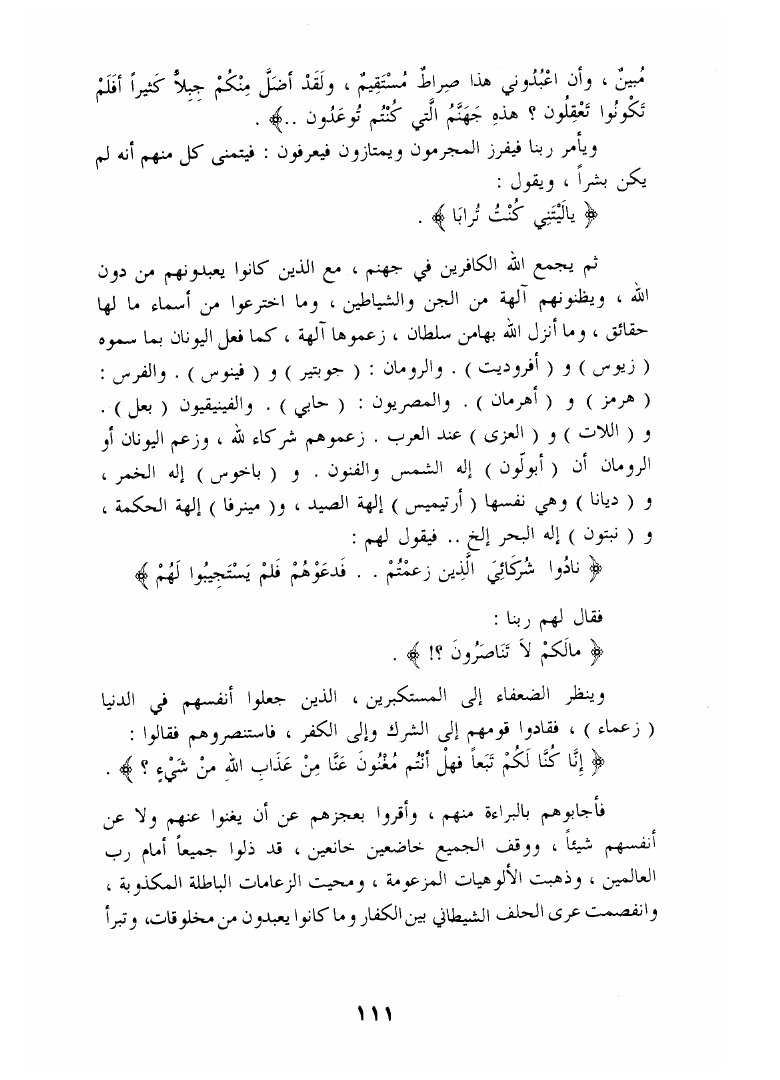 مُبينٌ ، وأن اعْبُدُوني هذا صِراطٌ مُسْتَقِيمٌ ، ولَقَدْ أضَلَّ مِنْكُمْ جِبِلاًّ كَثيراً أفَلَمْ
تَكُونُوا تَعْقِلُون ؟ هذهِ جَهَنَّمُ الَّتي كُنْتُم تُوعَدُون ..﴾ .
ويأمر ربنا فيفرز المجرمون ويمتازون فيعرفون : فيتمنى كل منهم أنه لم
يكن بشراً ، ويقول :
﴿ يالَيْتَنِي كُنْتُ تُرابَا ﴾ .
ثم يجمع الله الكافرين في جهنم ، مع الذين كانوا يعبدونهم من دون
الله ، ويظنونهم آلهة من الجن والشياطين ، وما اخترعوا من أسماء ما لها
حقائق ، وما أنزل الله بهامن سلطان ، زعموها آلهة ، كما فعل اليونان بما سموه
( زيوس ) و ( أفروديت ) . والرومان : ( جوبتير ) و ( فينوس ) . والفرس :
( هرمز ) و ( أهرمان ) . والمصريون : ( حابي ) . والفينيقيون ( بعل ) .
و ( اللات ) و ( العزى ) عند العرب . زعموهم شركاء لله ، وزعم اليونان أو
الرومان أن ( أبولّون ) إله الشمس والفنون . و ( باخوس ) إله الخمر ،
و ( ديانا ) وهي نفسها ( أرتيميس ) إلهة الصيد ، و( مينرفا ) إلهة الحكمة ،
و ( نبتون ) إله البحر إلخ .. فيقول لهم :
﴿ نادُوا شُرَكَائِيَ الَّذِين زعَمْتُمْ . . فَدعَوْهُمْ فَلمْ يَسْتَجِيبُوا لَهُمْ ﴾
فقال لهم ربنا :
﴿ مالَكمْ لاَ تَنَاصَرُونَ ؟! ﴾ .
وينظر الضعفاء إلى المستكبرين ، الذين جعلوا أنفسهم في الدنيا
( زعماء ) ، فقادوا قومهم إلى الشرك وإلى الكفر ، فاستنصروهم فقالوا :
﴿ إنَّا كُنَّا لَكُمْ تَبَعاً فهلْ أنْتُم مُغْنُونَ عَنَّا مِنْ عَذَابِ اللهِ منْ شَيْءٍ ؟ ﴾ .
فأجابوهم بالبراءة منهم ، وأقروا بعجزهم عن أن يغنوا عنهم ولا عن
أنفسهم شيئاً ، ووقف الجميع خاضعين خانعين ، قد ذلوا جميعاً أمام رب
العالمين ، وذهبت الألوهيات المزعومة ، ومحيت الزعامات الباطلة المكذوبة ،
وانفصمت عرى الحلف الشيطاني بين الكفار وما كانوا يعبدون من مخلوقات، وتبرأ
١١١